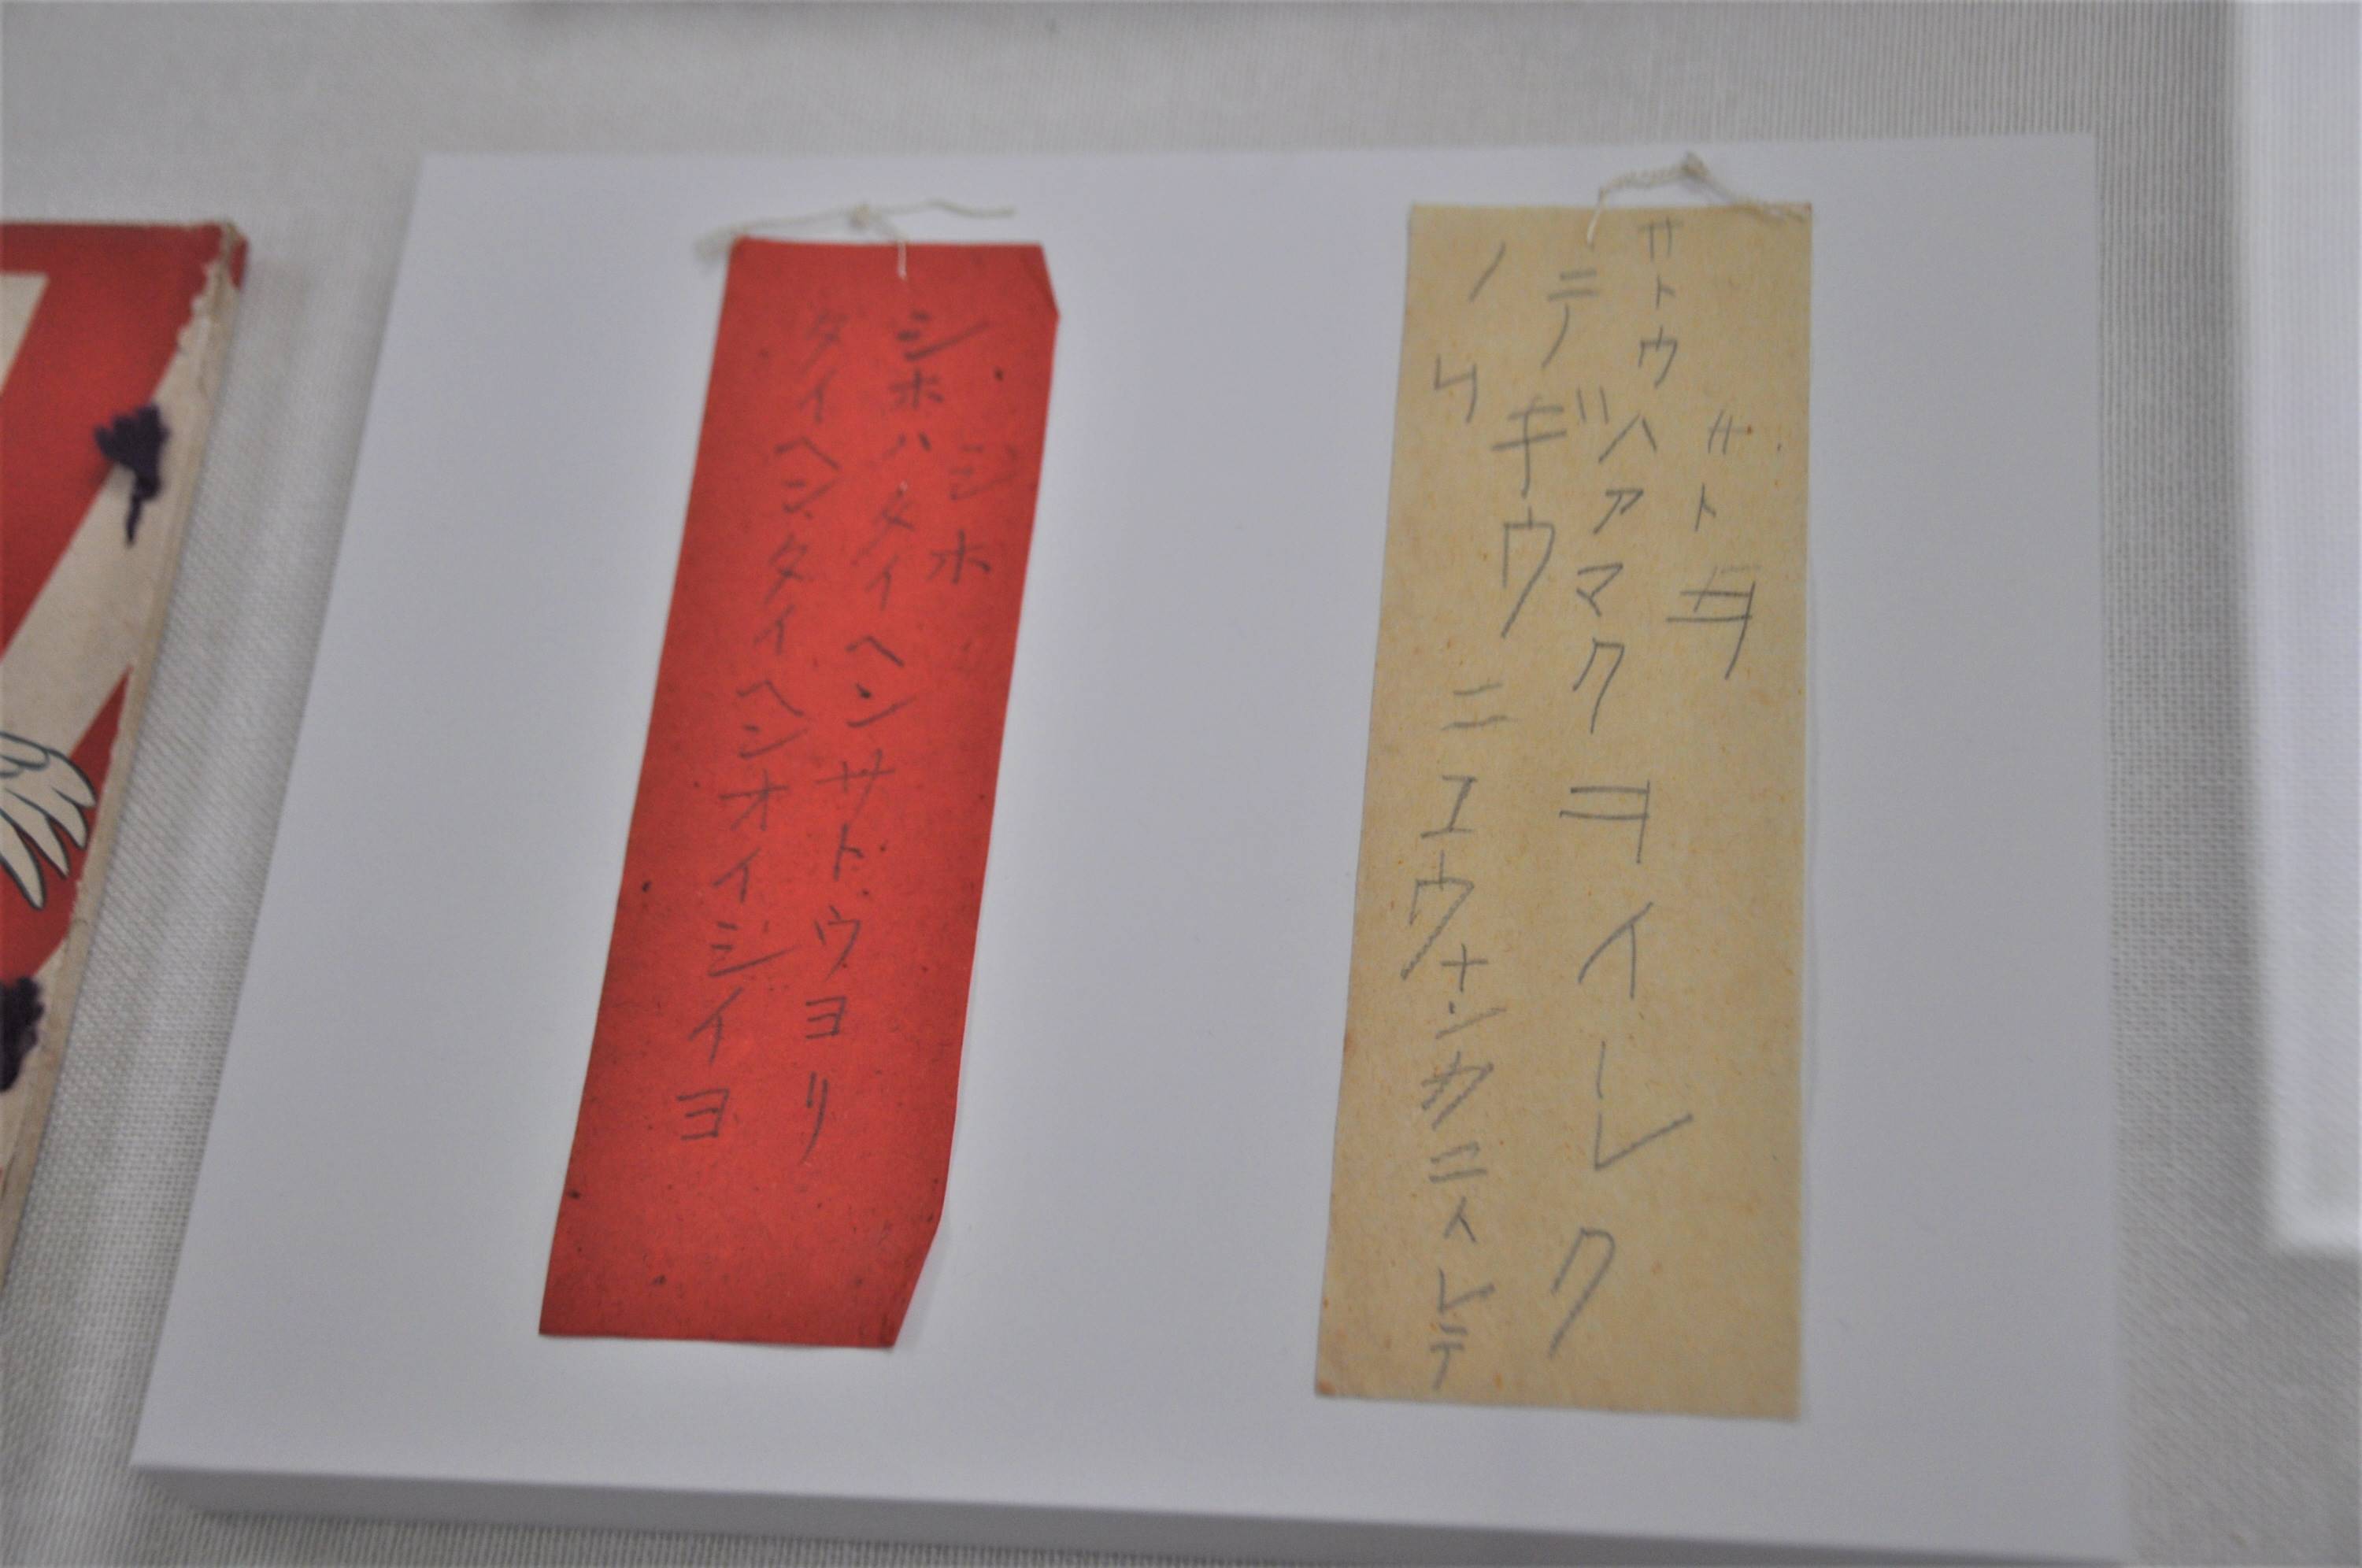 サトヲ
サトウハアマクヨイレク
テギウニエウナンカニイレテ
ノ
シホ
シホハタイヘンサトウヨリ
タイヘンタイヘンオイシイヨ